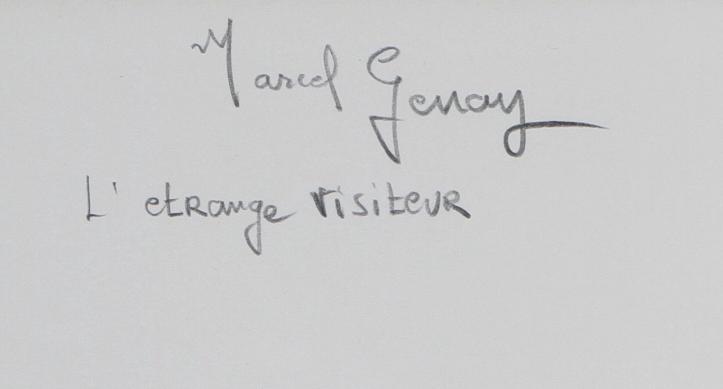 Marcel Genay
L' etrange visiteur